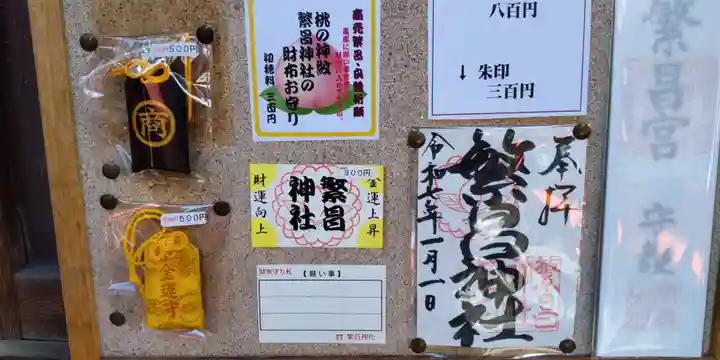 500円
商
500円
金運守
商売繁昌・良縁祈願
桃の神紋
繁昌神社の
財布お守り
初穂料 三百円
300円
金運上昇
繁昌
神社
財運向上
財布守り札
【願い事】
繁昌神社
八百円
↓ 朱印
三百円
奉拝
繁昌神社
令和七年一月一日
繁昌宮